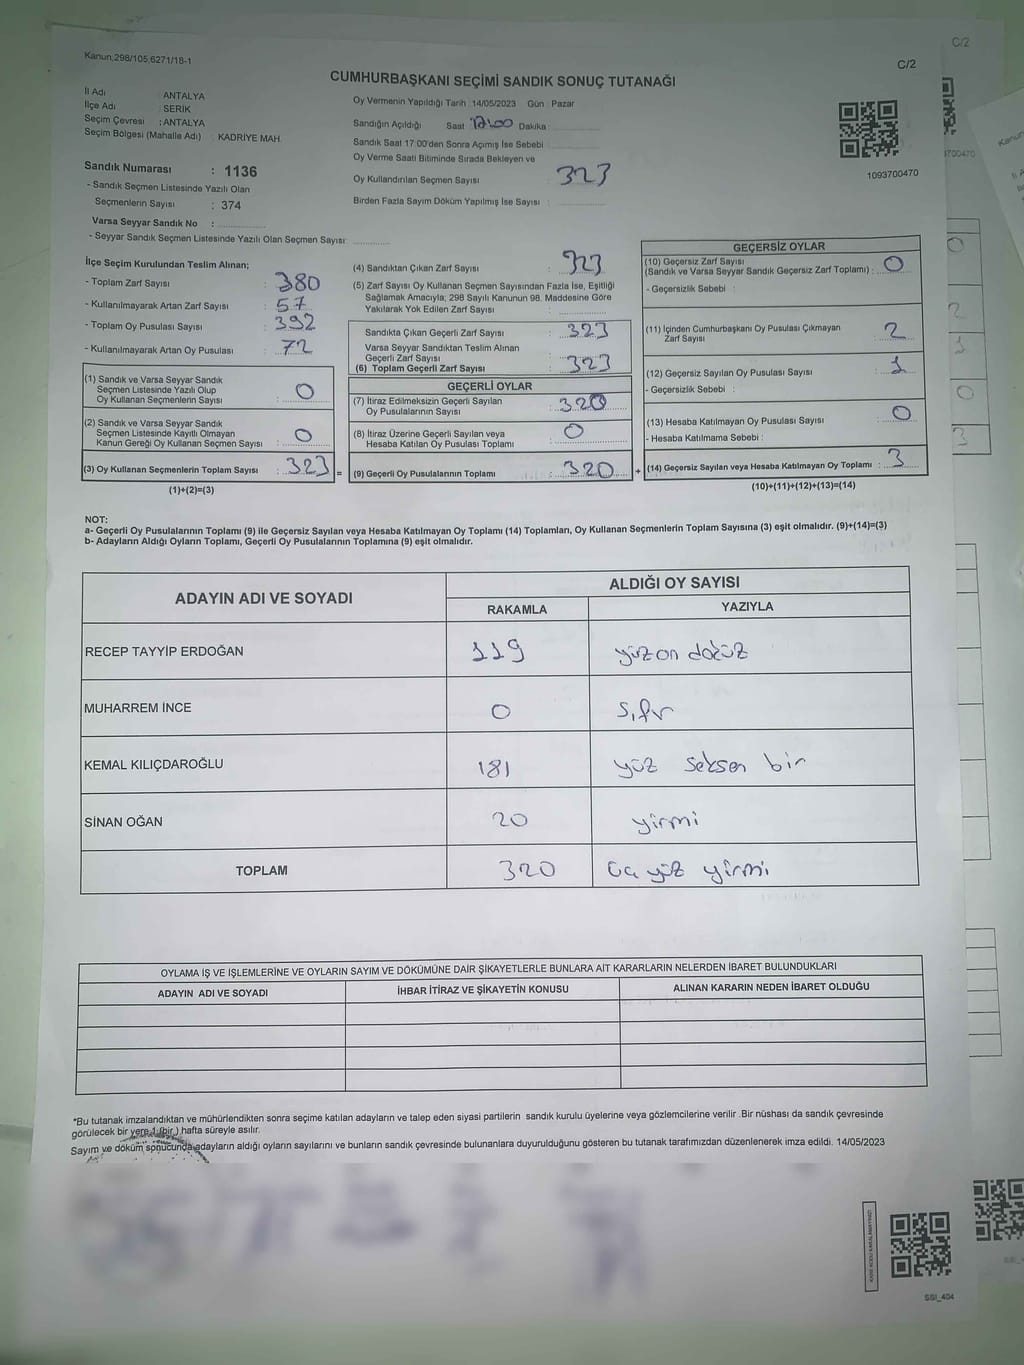 C/2
Kanun;298/105;6271/18-1
C/2
CUMHURBAŞKANI SEÇİMİ SANDIK SONUÇ TUTANAĞI
İl Adı : ANTALYA
İlçe Adı : SERİK
Seçim Çevresi : ANTALYA
Seçim Bölgesi (Mahalle Adı) : KADRİYE MAH.
Oy Vermenin Yapıldığı Tarih : 14/05/2023 Gün : Pazar
Sandığın Açıldığı Saat Dakika :
Sandık Saat 17:00'den Sonra Açımış İse Sebebi
Oy Verme Saati Bitiminde Sırada Bekleyen ve
Oy Kullandırılan Seçmen Sayısı : 323
Birden Fazla Sayım Döküm Yapılmış İse Sayısı :
1093700470
Sandık Numarası : 1136
- Sandık Seçmen Listesinde Yazılı Olan
Seçmenlerin Sayısı : 374
Varsa Seyyar Sandık No :
- Seyyar Sandık Seçmen Listesinde Yazılı Olan Seçmen Sayısı:
İlçe Seçim Kurulundan Teslim Alınan;
- Toplam Zarf Sayısı : 380
- Kullanılmayarak Artan Zarf Sayısı : 57
- Toplam Oy Pusulası Sayısı : 392
- Kullanılmayarak Artan Oy Pusulası : 72
(1) Sandık ve Varsa Seyyar Sandık
Seçmen Listesinde Yazılı Olup
Oy Kullanan Seçmenlerin Sayısı : 0
(2) Sandık ve Varsa Seyyar Sandık
Seçmen Listesinde Kayıtlı Olmayan
Kanun Gereği Oy Kullanan Seçmen Sayısı : 0
(3) Oy Kullanan Seçmenlerin Toplam Sayısı : 323 =
(1)+(2)=(3)
(4) Sandıktan Çıkan Zarf Sayısı : 323
(5) Zarf Sayısı Oy Kullanan Seçmen Sayısından Fazla İse, Eşitliği
Sağlamak Amacıyla; 298 Sayılı Kanunun 98. Maddesine Göre
Yakılarak Yok Edilen Zarf Sayısı :
Sandıkta Çıkan Geçerli Zarf Sayısı : 323
Varsa Seyyar Sandıktan Teslim Alınan
Geçerli Zarf Sayısı
(6) Toplam Geçerli Zarf Sayısı : 323
GEÇERLİ OYLAR
(7) İtiraz Edilmeksizin Geçerli Sayılan
Oy Pusulalarının Sayısı : 320
(8) İtiraz Üzerine Geçerli Sayılan veya
Hesaba Katılan Oy Pusulası Toplamı : 0
(9) Geçerli Oy Pusulalarının Toplamı : 320 +
GEÇERSİZ OYLAR
(10) Geçersiz Zarf Sayısı
(Sandık ve Varsa Seyyar Sandık Geçersiz Zarf Toplamı) : 0
- Geçersizlik Sebebi :
(11) İçinden Cumhurbaşkanı Oy Pusulası Çıkmayan
Zarf Sayısı : 2
(12) Geçersiz Sayılan Oy Pusulası Sayısı : 1
- Geçersizlik Sebebi :
(13) Hesaba Katılmayan Oy Pusulası Sayısı : 0
- Hesaba Katılmama Sebebi :
(14) Geçersiz Sayılan veya Hesaba Katılmayan Oy Toplamı : 3
(10)+(11)+(12)+(13)=(14)
NOT:
a- Geçerli Oy Pusulalarının Toplamı (9) ile Geçersiz Sayılan veya Hesaba Katılmayan Oy Toplamı (14) Toplamları, Oy Kullanan Seçmenlerin Toplam Sayısına (3) eşit olmalıdır. (9)+(14)=(3)
b- Adayların Aldığı Oyların Toplamı, Geçerli Oy Pusulalarının Toplamına (9) eşit olmalıdır.
ADAYIN ADI VE SOYADI
ALDIĞI OY SAYISI
RAKAMLA YAZIYLA
RECEP TAYYİP ERDOĞAN 119 yüz on dokuz
MUHARREM İNCE 0 sıfır
KEMAL KILIÇDAROĞLU 181 yüz seksen bir
SİNAN OĞAN 20 yirmi
TOPLAM 320 üç yüz yirmi
OYLAMA İŞ VE İŞLEMLERİNE VE OYLARIN SAYIM VE DÖKÜMÜNE DAİR ŞİKAYETLERLE BUNLARA AİT KARARLARIN NELERDEN İBARET BULUNDUKLARI
ADAYIN ADI VE SOYADI İHBAR İTİRAZ VE ŞİKAYETİN KONUSU ALINAN KARARIN NEDEN İBARET OLDUĞU
*Bu tutanak imzalandıktan ve mühürlendikten sonra seçime katılan adayların ve talep eden siyasi partilerin sandık kurulu üyelerine veya gözlemcilerine verilir .Bir nüshası da sandık çevresinde
görülecek bir yere 1 (bir ) hafta süreyle asılır.
Sayım ve döküm sonucunda adayların aldığı oyların sayılarını ve bunların sandık çevresinde bulunanlara duyurulduğunu gösteren bu tutanak tarafımızdan düzenlenerek imza edildi. 14/05/2023
SSI_404